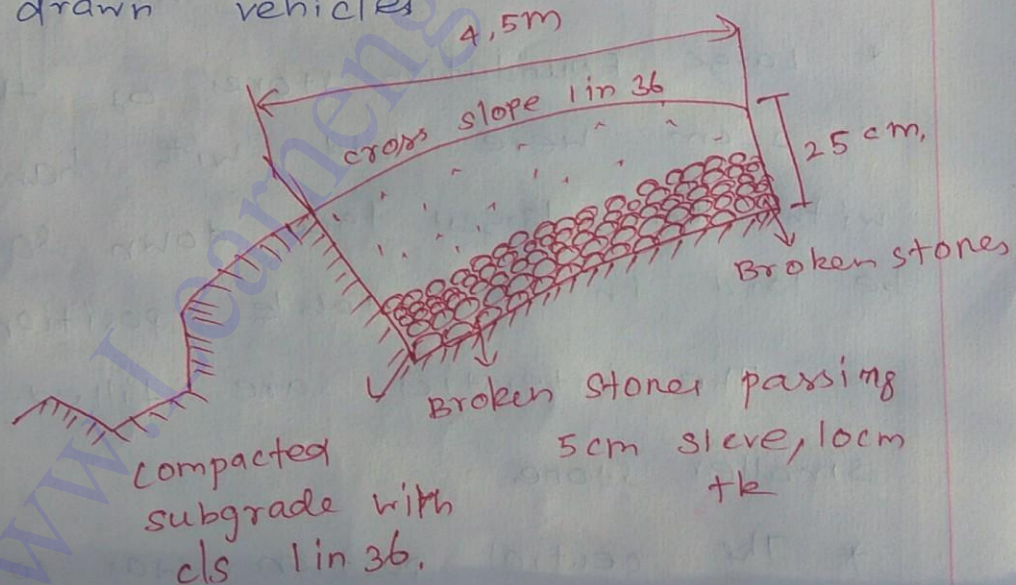 drawn vehicles
4,5m
cross slope 1 in 36
25 cm,
Broken stones
Broken stones passing
5cm sieve, 10cm
tk
compacted
subgrade with
c/s 1 in 36.
www.Learneng